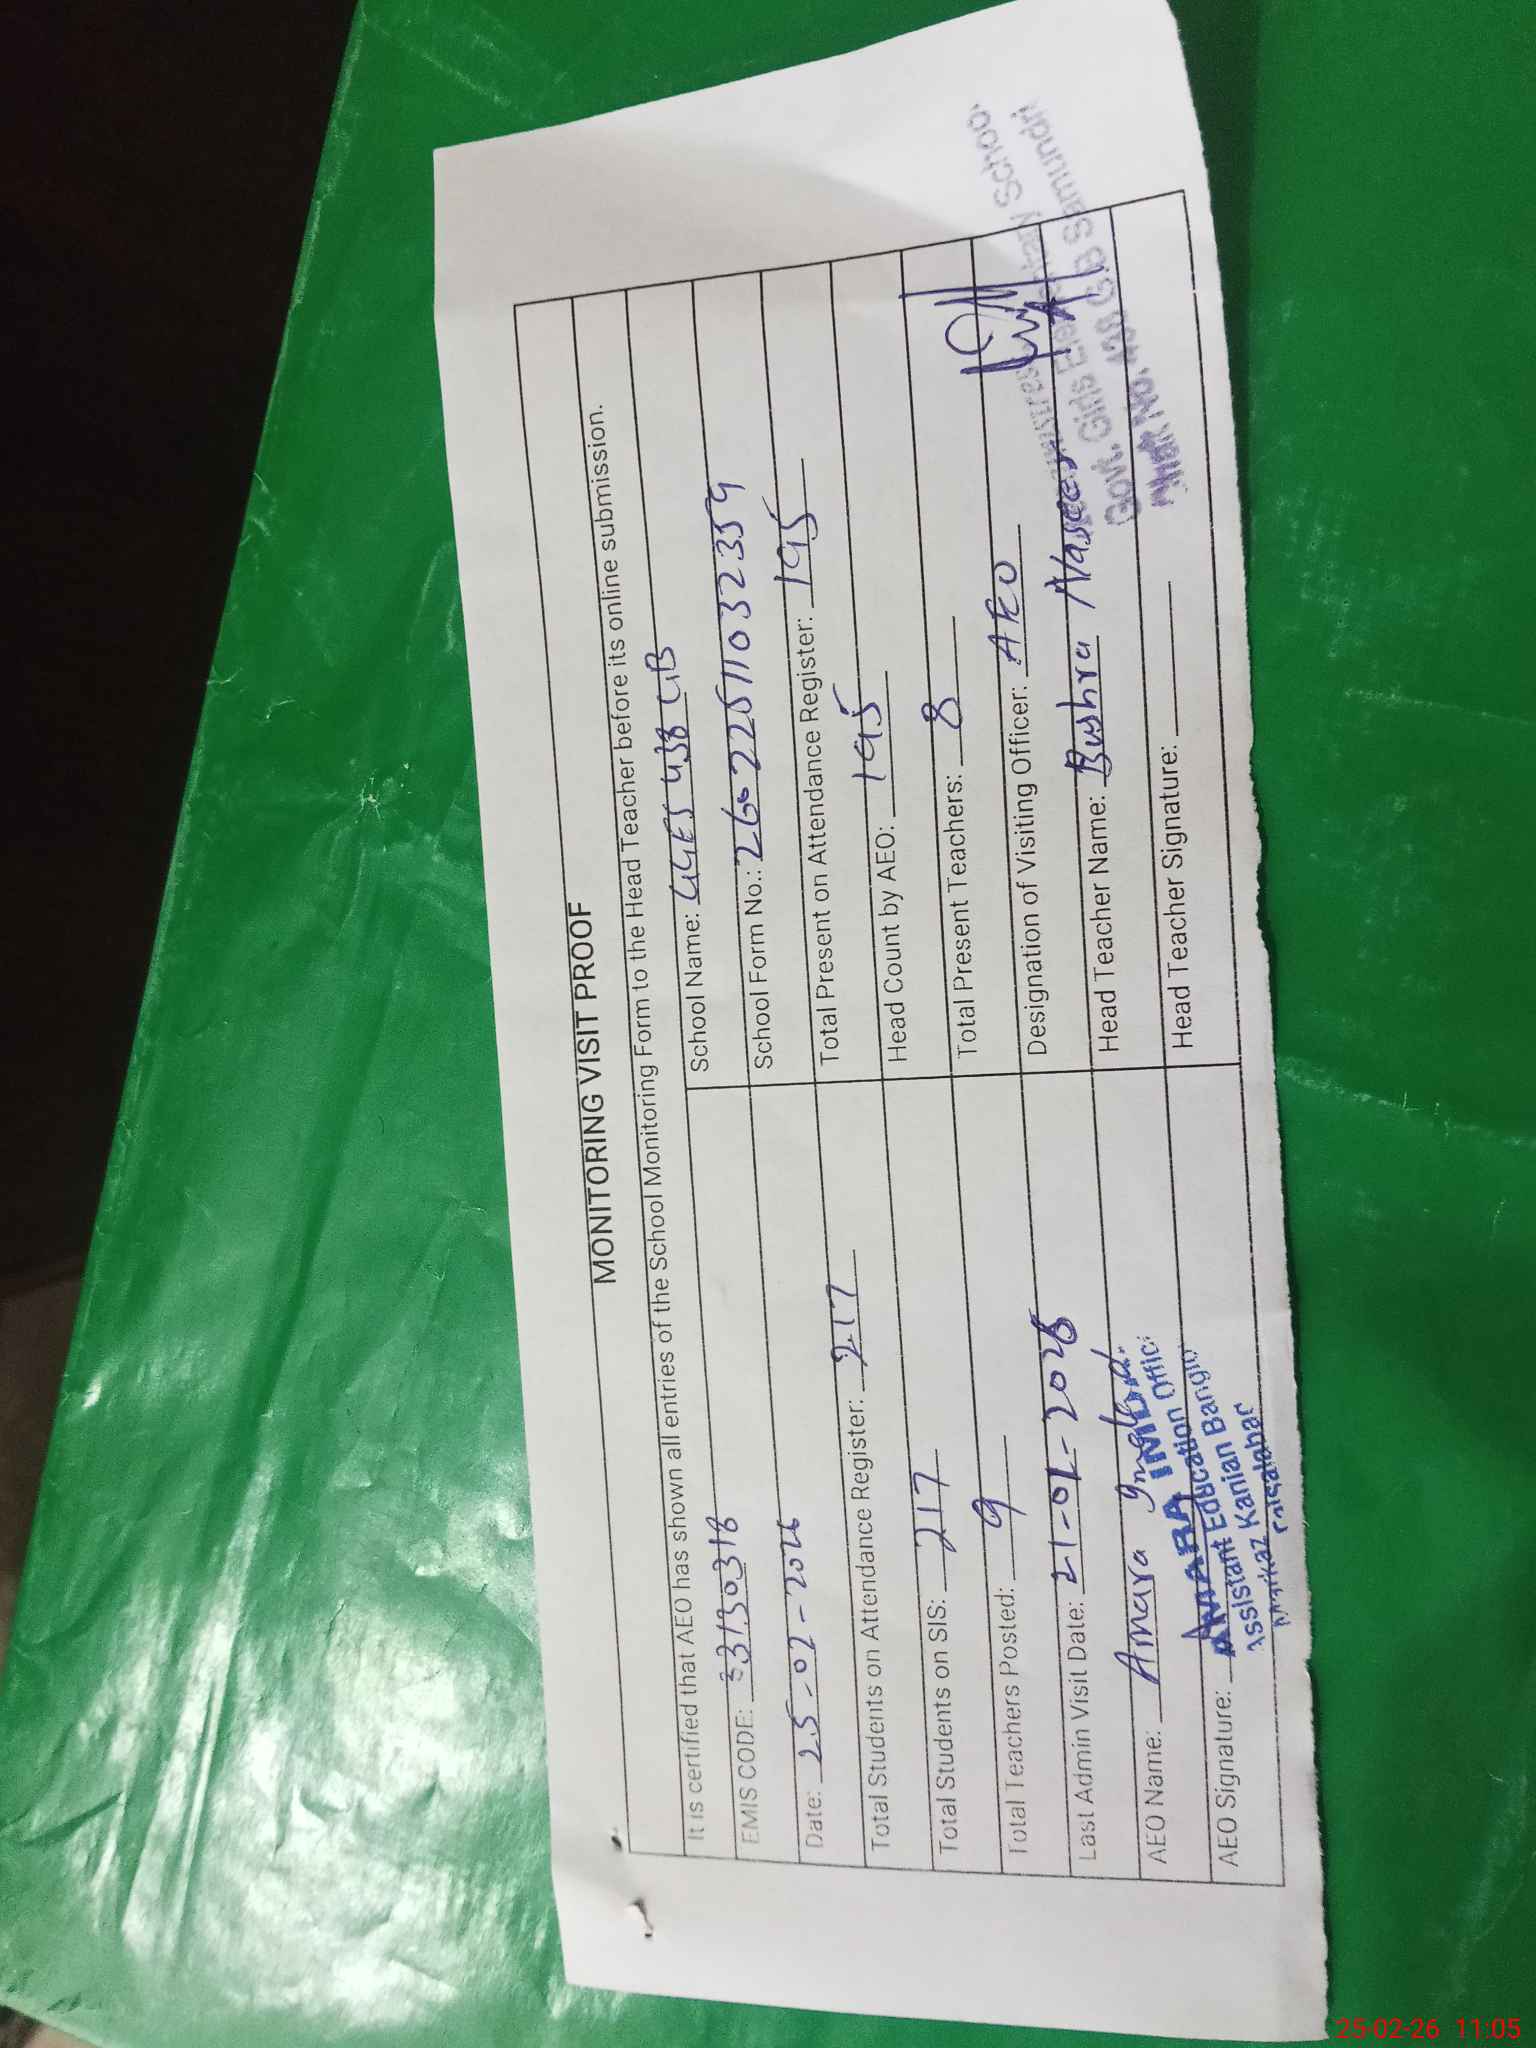 MONITORING VISIT PROOF
It is certified that AEO has shown all entries of the School Monitoring Form to the Head Teacher before its online submission.
EMIS CODE: 33130318 School Name: GGES 438 GB
Date: 25-02-2026 School Form No.: 260225110 32359
Total Students on Attendance Register: 217 Total Present on Attendance Register: 195
Total Students on SIS: 217 Head Count by AEO: 195
Total Teachers Posted: 9 Total Present Teachers: 8
Last Admin Visit Date: 21-01-2026 Designation of Visiting Officer: AEO
AEO Name: Amara Head Teacher Name: Bushra Naseer
AEO Signature: Head Teacher Signature:
AMARA
Assistant Education Offic
Markaz Kanian Bangl
Govt. Girls Elementary School
Chak No. 438 G.B Samundri
25-02-26 11:05